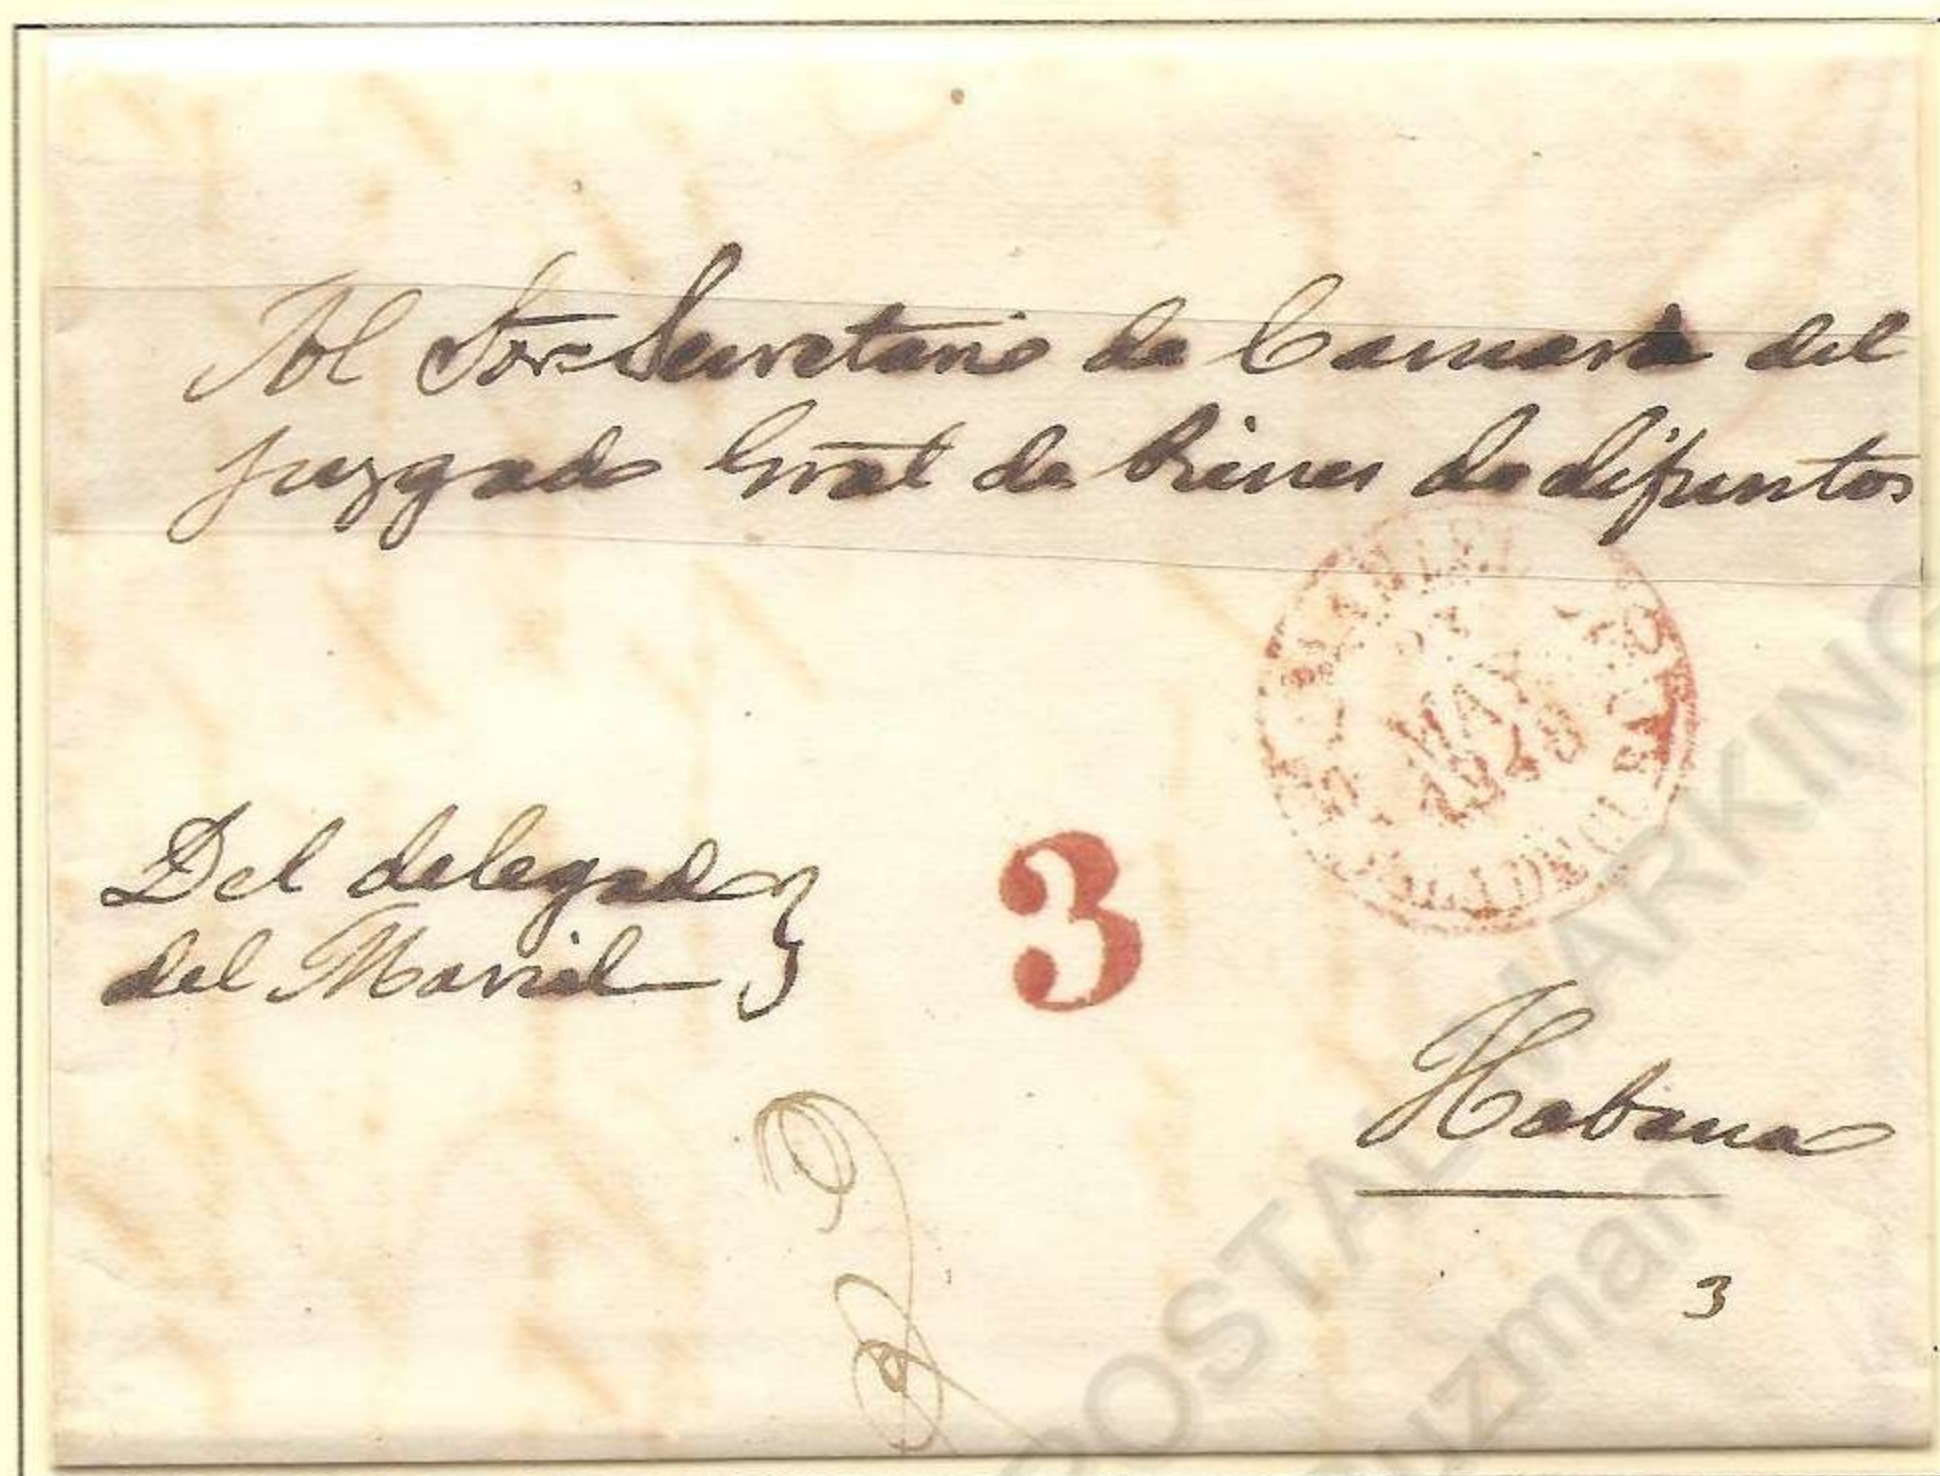 Al Sor Secretario de Camara del
juzgado Gral de bienes de difuntos
MAY
1848
Del delegado
del Mariel
3
Habana
3
POSTAL MARKING
uzman